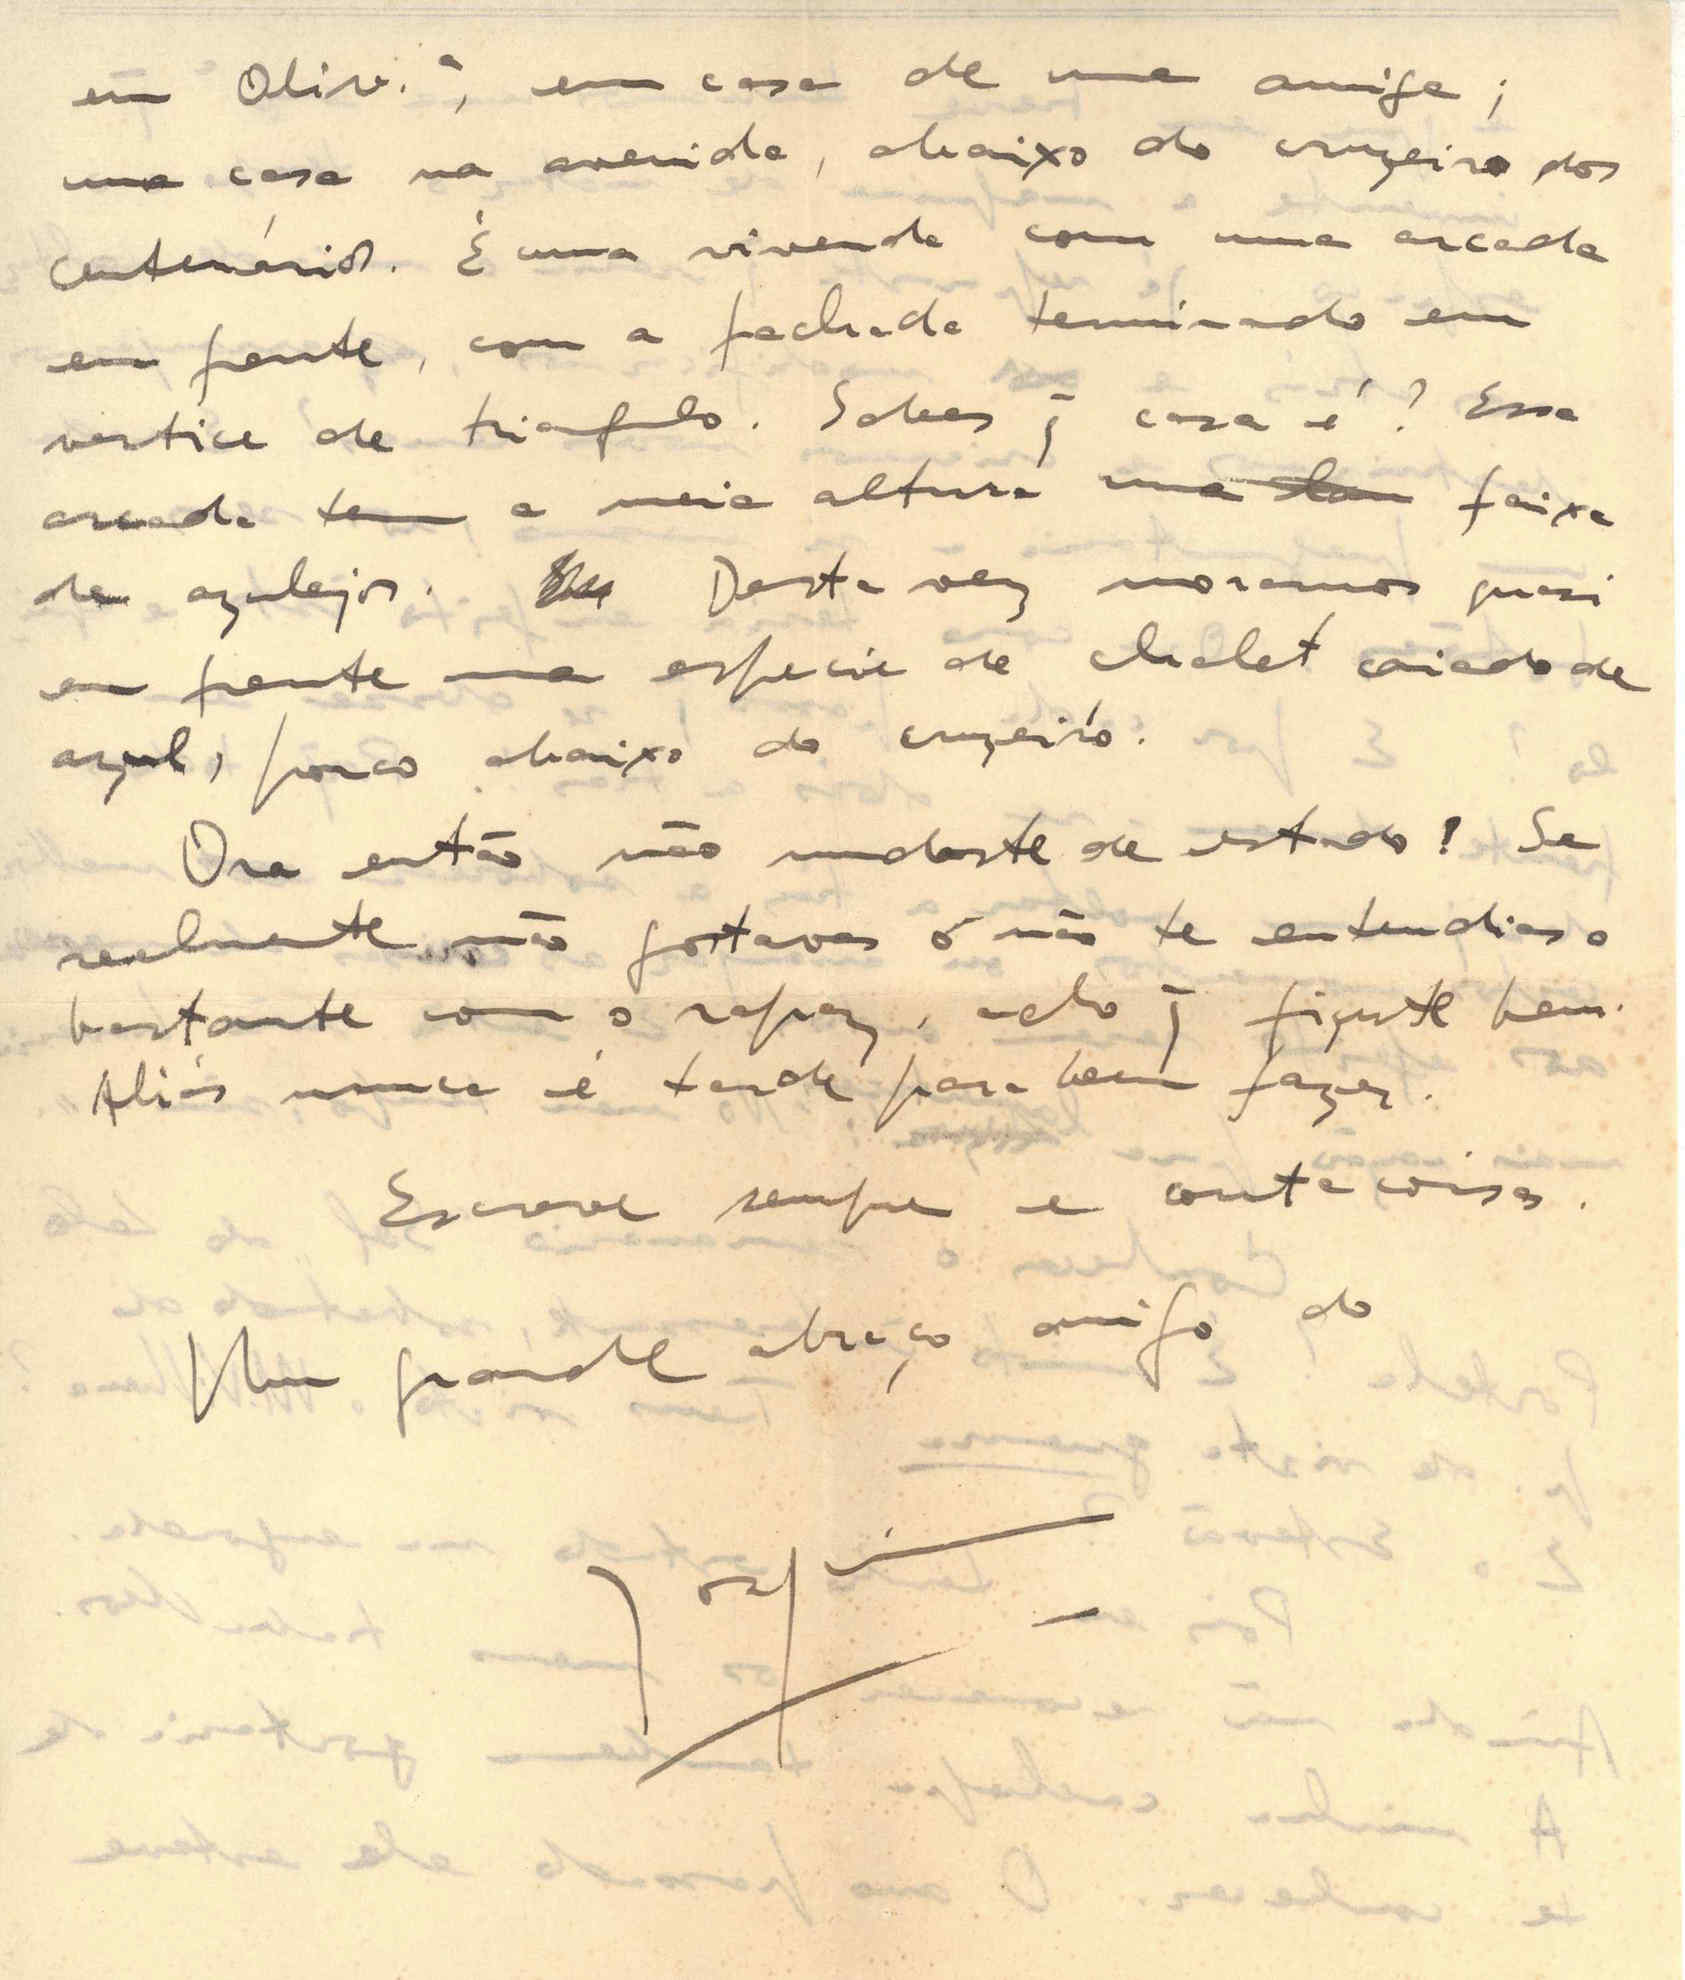 em Oliv.ª, em casa de uma amiga;
uma casa na avenida, abaixo do cruzeiro dos
centenários. É uma vivenda com uma arcada
em frente, com a fachada terminando em
vertice de triangulo. Sabes q̄ casa é? Essa
arcada tem a meia altura uma faixa
de azulejos. Desta vez moramos quasi
em frente numa especie de chalet caiado de
azul, pouco abaixo do cruzeiro.
Ora então não mudaste de estado! Se
realmente não gostavas ou não te entendias o
bastante com o rapaz, acho q̄ fizeste bem.
Aliás nunca é tarde para bem fazer.
Escreve sempre e conta coisas.
Um grande abraço amigo do